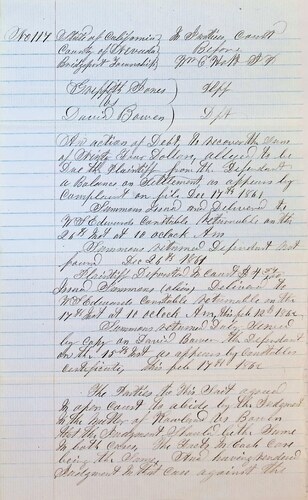 No 114 State of California In Justices Court
County of Nevada Before
Bridgeport Township Wm C Holt J.P.
Griffith Jones ) Plff
vs
David Bowen ) Dft
An action of Debt, to recover the sum
of Ninty Dollars, alleged to be
due the Plaintiff from the Defendant
a Balance on Settlement as appears by
Complaint on file Dec 17th 1861
Summons Issued and Delivered to
W S Edwards Constable returnable on the
26th Inst at 10 oclock Am
Summons returned Defendent not
found Dec 26th 1861
Plaintiff Deposited in Court $4
Issued Summons (alias) Delivered to
W S Edwards Constable returnable on the
17th Inst at 10 oclock Am, this feb 12th 1862
Summons returned Duly served
by Copy on David Bowen the Defendant
on the 15th Inst as appears by Constables
Certificate, this feb 17th 1862
The Parties to this Suit agreed
in open Court to abide by the Judgment
in the matter of Rowland vs Bowen
that the Judgment should be the Same
in both Cases, The facts in Each Case
being the Same, And having rendered
Judgment in that Case against the